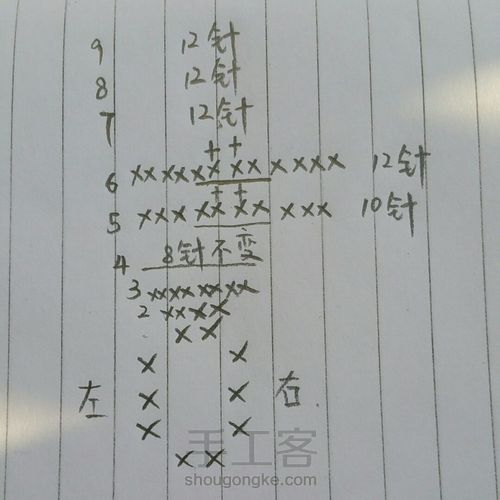 9 12针
8 12针
7 12针
+ +
6 xxxxxxx xx xxxx 12针
+ +
5 xxx xx xx xxx 10针
4 8针不变
3 xxxx xx xx
2 xx xx
x x
x x
左 x x 右
x x
x x
手工客
shougongke.com